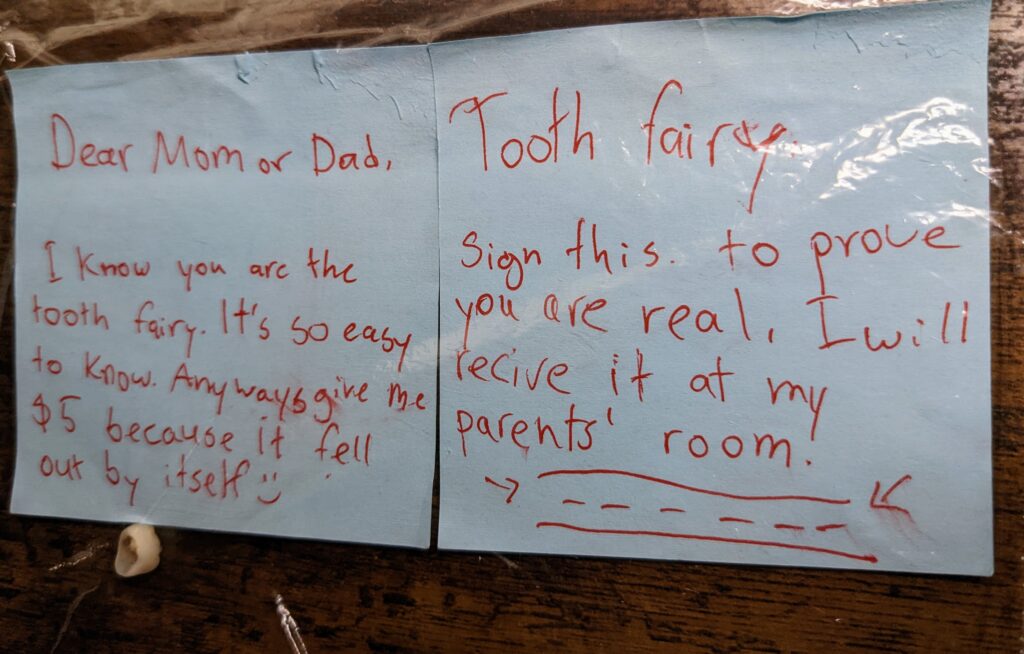 Dear Mom or Dad,
I know you are the
tooth fairy. It's so easy
to know. Anyways give me
$5 because it fell
out by itself
Tooth fairy.
Sign this. to prove
you are real, I will
recive it at my
parents' room!